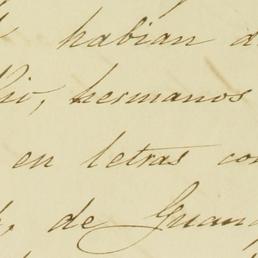 habian d
hermanos
en letras con
de Guan